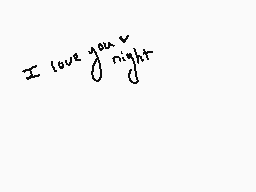 I love you ♥
night